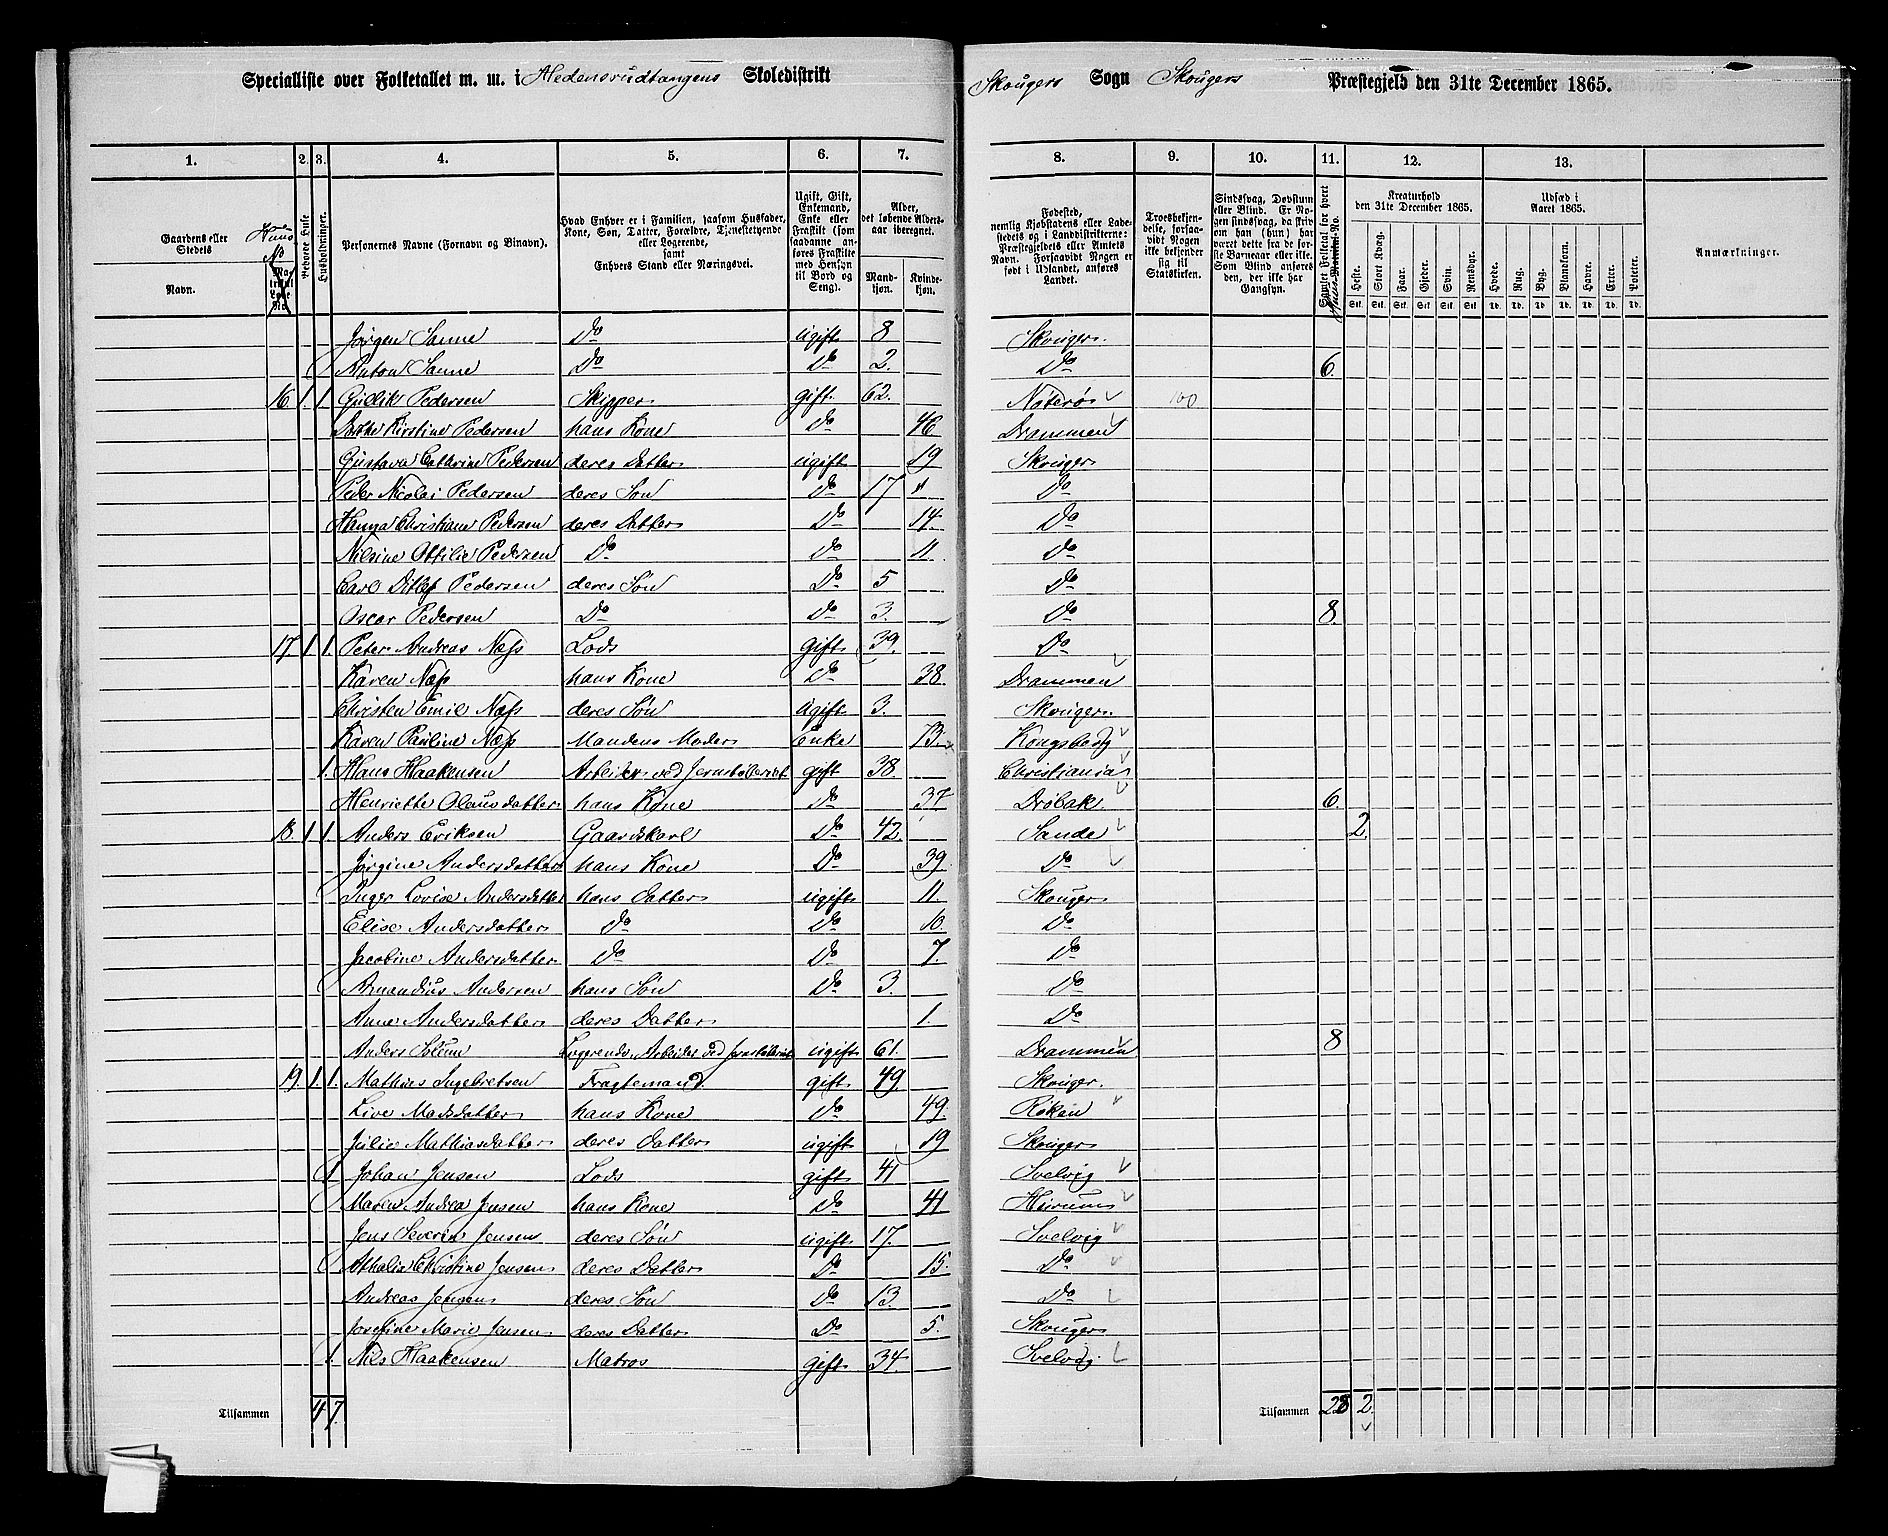 Specialliste over Folketallet m. m. i Hedensrudtangens Skoledistrikt
Skougers Sogn Skougers Præstegjeld den 31te December 1865.
1. 2. 3. 4. 5. 6. 7. 8. 9. 10. 11. 12. 13.
Gaardens eller Stedets Navn.
Huus No
Matrikul Løbe No.
Beboede Huse
Husholdninger.
Personernes Navne (Fornavn og Binavn).
Hvad Enhver er i Familien, saasom Husfader, Kone, Søn, Datter, Forældre, Tjenestetyende eller Logerende, samt Enhvers Stand eller Næringsvei.
Ugift, Gift, Enkemand, Enke eller Fraskilt (som saadanne anføres Fraskilte med Hensyn til Bord og Seng).
Alder, det løbende Alders-aar iberegnet.
Mand-kjøn. Kvinde-kjøn.
Fødested, nemlig Kjøbstadens eller Ladestedets og i Landdistrikterne: Præstegjeldets eller Amtets Navn. Forsaavidt Nogen er født i Udlandet, anføres Landet.
Troesbekjendelse, forsaavidt Nogen ikke bekjender sig til Statskirken.
Sindssvag, Døvstum eller Blind. Er Nogen sindssvag, da skrives om han (hun) har været dette fra de første Barneaar eller ikke. Som Blind anføres den, der ikke har Gangsyn.
Samlet Folketal for hvert Huus No.
Kreaturhold den 31te December 1865.
Heste. Stort Kvæg. Faar. Gjeder. Svin. Rensdyr.
Stk. Stk. Stk. Stk. Stk. Stk.
Udsæd i Aaret 1865.
Hvede. Rug. Byg. Blandkorn. Havre. Erter. Poteter.
Td. Td. Td. Td. Td. Td. Td.
Anmærkninger.
Jørgen Sanne Do ugift 8 Skouger.
Anton Sanne Do Do 2. Do 6.
16. 1. 1. Gullik Pedersen Skipper gift. 62. Nøterø
Dorthe Kirstine Pedersen hans Kone Do 46 Drammen
Gustava Cathrine Pedersen deres Datter ugift 19 Skouger
Peder Nicolai Pedersen deres Søn Do 17 Do
Hanna Christiane Pedersen deres Datter Do 14. Do
Nilsine Ottilie Pedersen Do Do 11. Do
Carl Ditlef Pedersen deres Søn Do 5 Do
Oscar Pedersen Do Do 3. Do 8.
17. 1 1. Peter Andreas Næss Lods gift 39. Do
Karen Næss hans Kone Do 38. Drammen
Christen Emil Næss deres Søn ugift 3. Skouger.
Karen Pauline Næss Mandens Moder Enke 73. Kongsberg
1. Hans Haakensen Arbeider ved Jernstøberiet gift 38. Christiania
Henriette Olausdatter hans Kone Do 37 Drøbak. 6.
18. 1 1. Anders Eriksen Gaardskarl Do 42. Sande 2.
Jørgine Andersdatter hans Kone Do 39. Do
Inger Lovise Andersdatter hans Datter ugift 11. Skouger
Elise Andersdatter Do Do 10. Do
Jacobine Andersdatter Do Do 7. Do
Amandius Andersen hans Søn Do 3. Do
Anne Andersdatter deres Datter 1. Do
Anders Solum Logerende, Arbeider ved Jernstøberiet ugift 61. Drammen 8
19. 1. 1. Mathias Ingebretsen Fragtemand. gift 49. Skouger.
Live Madsdatter hans Kone Do 49. Røken
Julie Mathiasdatter deres Datter ugift 19 Skouger
1. Johan Jensen Lods gift 41 Svelvig
Maren Andrea Jensen hans Kone Do 41 Hurum
Jens Severin Jensen deres Søn ugift 17. Svelvig
Athalia Christine Jensen deres Datter Do 15. Do
Andreas Jensen deres Søn Do 13. Do
Josefine Marie Jensen deres Datter Do 5. Skouger
1. Nils Haakensen Matros gift 34. Svelvig
Tilsammen 4 7. Tilsammen 28 2.